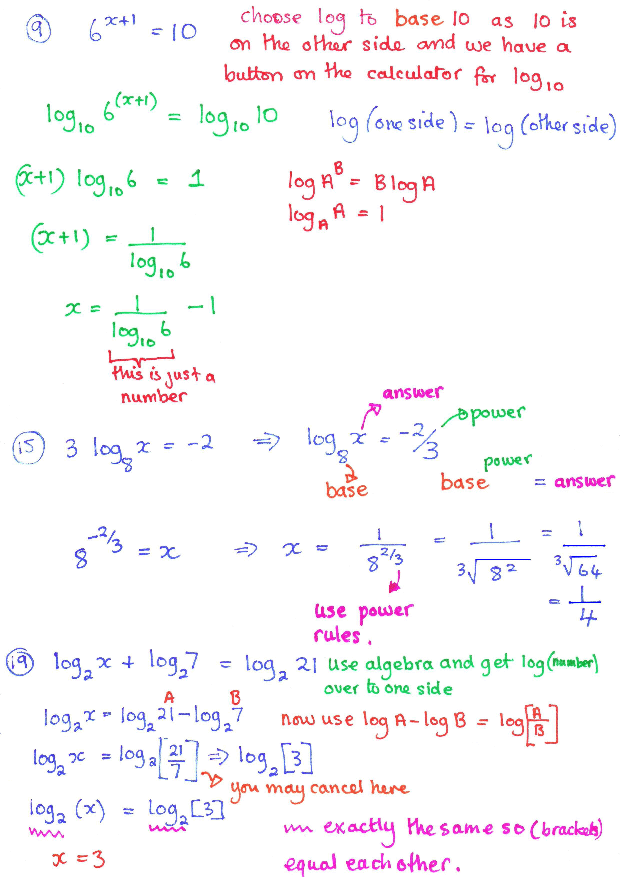 ⑨ 6^(x+1) = 10 choose log to base 10 as 10 is
on the other side and we have a
button on the calculator for log₁₀
log₁₀ 6^(x+1) = log₁₀ 10 log(one side) = log(other side)
(x+1) log₁₀ 6 = 1 log A^B = B log A
log_A A = 1
(x+1) = 1/log₁₀ 6
x = 1/log₁₀ 6 - 1
this is just a
number
answer
⑮ 3 log₈ x = -2 ⇒ log₈ x = -2/3 power
base base^power = answer
8^(-2/3) = x ⇒ x = 1/8^(2/3) = 1/³√8² = 1/³√64
= 1/4
use power
rules.
⑲ log₂ x + log₂ 7 = log₂ 21 use algebra and get log(number)
over to one side
A B
log₂ x = log₂ 21 - log₂ 7 now use log A - log B = log[A/B]
log₂ x = log₂[21/7] ⇒ log₂[3]
you may cancel here
log₂ (x) = log₂ [3]
exactly the same so (brackets)
x = 3 equal each other.